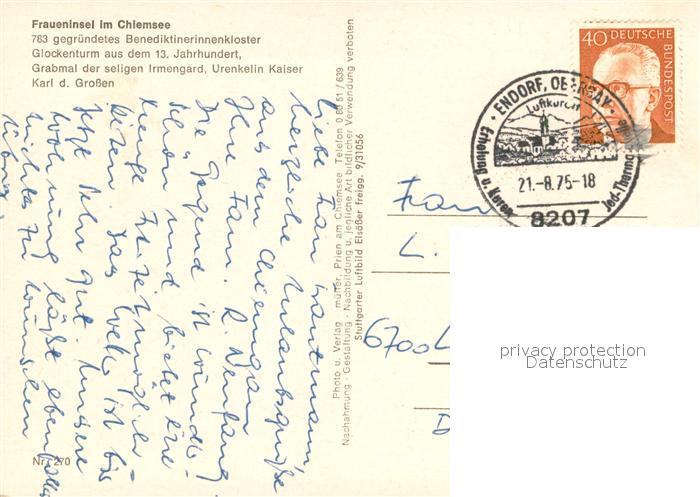 Fraueninsel im Chiemsee
783 gegründetes Benediktinerinnenkloster
Glockenturm aus dem 13. Jahrhundert,
Grabmal der seligen Irmengard, Urenkelin Kaiser
Karl d. Großen
Liebe Frau
herzliche Urlaubsgrüße
aus dem Chiemgau
Ihre Fam. R.
Die Gegend ist wunder-
schön und bietet eine
Menge
Bitten. Das Wetter ist bis
jetzt sehr gut. Unsere
Wohnung läßt ebenfalls
nichts zu wünschen
übrig.
Nr. 270
Photo u. Verlag müller, Prien am Chiemsee Telefon 0 80 51 / 639
Nachahmung - Gestaltung - Nachbildung u. jegliche Art bildlicher Verwendung verboten
Stuttgarter Luftbild Elsäßer freigg. 9/31056
40 DEUTSCHE BUNDESPOST
ENDORF, OBERBAY
Luftkurort
Erholung u. Kuren
Jod-Thermal
21.-8.75-18
8207
Frau
L.
6700 L
privacy protection
Datenschutz